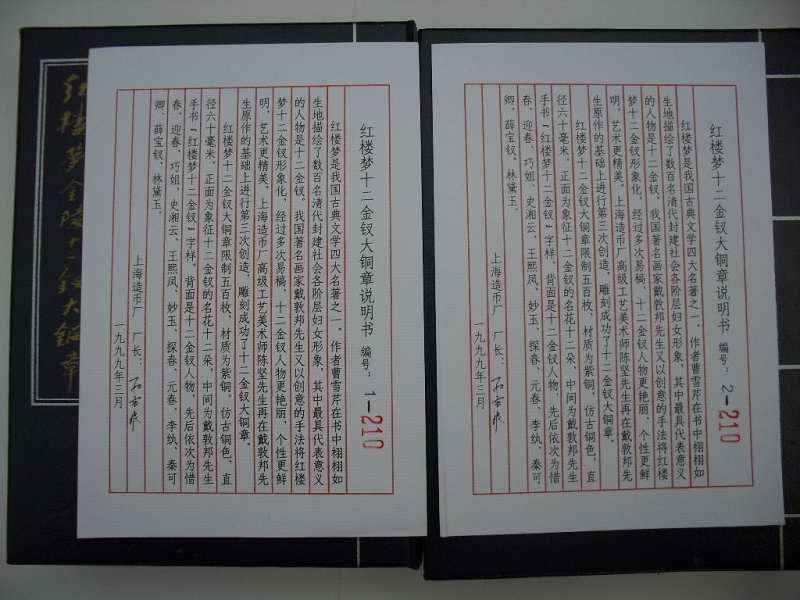 红楼梦金陵十二钗大铜章
红楼梦十二金钗大铜章说明书 编号：1-210
红楼梦是我国古典文学四大名著之一，作者曹雪芹在书中栩栩如
生地描绘了数百名清代封建社会各阶层妇女形象，其中最具代表意义
的人物是十二金钗。我国著名画家戴敦邦先生又以创意的手法将红楼
梦十二金钗形象化，经过多次易稿，十二金钗人物更艳丽，个性更鲜
明，艺术更精美。上海造币厂高级工艺美术师陈坚先生再在戴敦邦先
生原作的基础上进行第三次创造，雕刻成功了十二金钗大铜章。
红楼梦十二金钗大铜章限制五百枚，材质为紫铜，仿古铜色，直
径六十毫米，正面为象征十二金钗的名花十二朵，中间为戴敦邦先生
手书“红楼梦十二金钗”字样，背面是十二金钗人物，先后依次为惜
春、迎春、巧姐、史湘云、王熙凤、妙玉、探春、元春、李纨、秦可
卿、薛宝钗、林黛玉。
上海造币厂 厂长：
一九九九年三月
红楼梦十二金钗大铜章说明书 编号：2-210
红楼梦是我国古典文学四大名著之一，作者曹雪芹在书中栩栩如
生地描绘了数百名清代封建社会各阶层妇女形象，其中最具代表意义
的人物是十二金钗。我国著名画家戴敦邦先生又以创意的手法将红楼
梦十二金钗形象化，经过多次易稿，十二金钗人物更艳丽，个性更鲜
明，艺术更精美。上海造币厂高级工艺美术师陈坚先生再在戴敦邦先
生原作的基础上进行第三次创造，雕刻成功了十二金钗大铜章。
红楼梦十二金钗大铜章限制五百枚，材质为紫铜，仿古铜色，直
径六十毫米，正面为象征十二金钗的名花十二朵，中间为戴敦邦先生
手书“红楼梦十二金钗”字样，背面是十二金钗人物，先后依次为惜
春、迎春、巧姐、史湘云、王熙凤、妙玉、探春、元春、李纨、秦可
卿、薛宝钗、林黛玉。
上海造币厂 厂长：
一九九九年三月